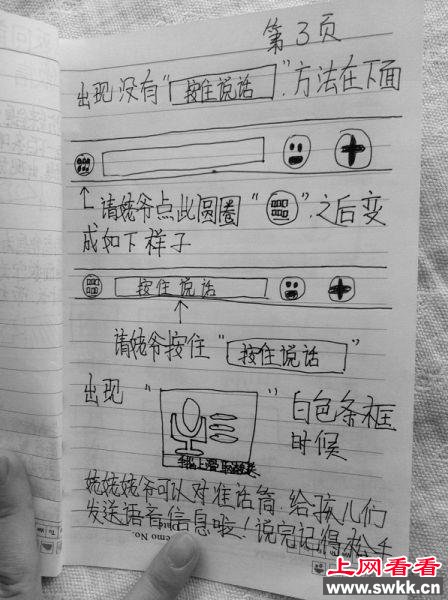 第3页
出现没有“按住说话”.方法在下面
请姥爷点此圆圈“ ”.之后变
成如下样子
按住说话
请姥爷按住“按住说话”
出现“ ”白色条框
时候.
手指上滑,取消发送
姥姥姥爷可以对准话筒.给孩儿们
发送语音信息啦!说完记得松手
emo No.
上网看看
www.swkk.cn